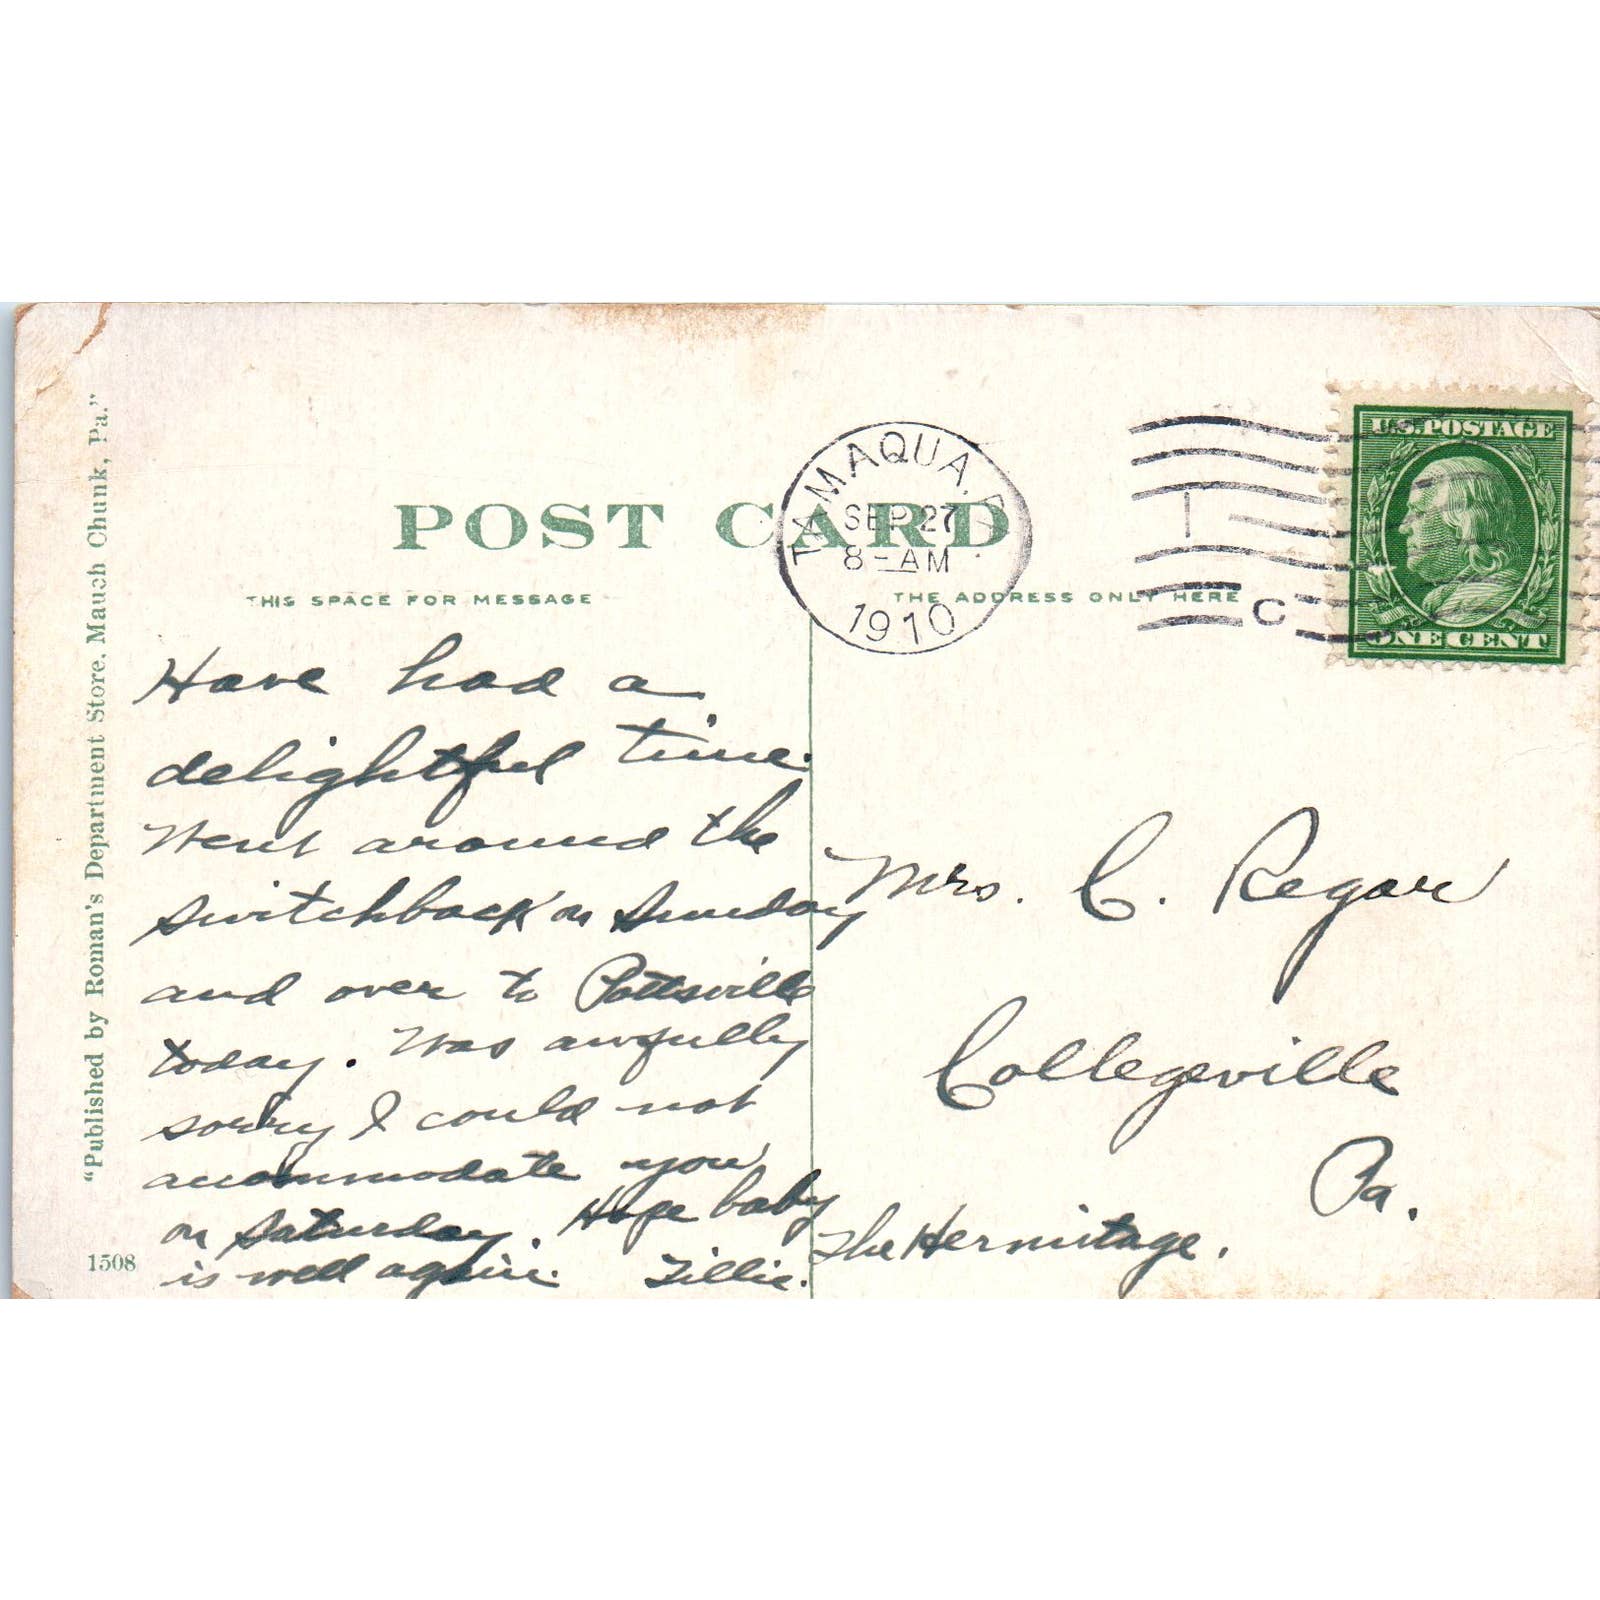 "Published by Roman's Department Store, Mauch Chunk, Pa."
1508
POST CARD
THIS SPACE FOR MESSAGE
THE ADDRESS ONLY HERE
TAMAQUA, P
SEP 27
8-AM
1910
1
C
U.S. POSTAGE
ONE CENT
Have had a
delightful time.
Went around the
switchback on Sunday
and over to Pottsville
today. Was awfully
sorry I could not
accommodate you
on Saturday. Hope baby
is well again. Tillie.
Mrs. C. Regar
Collegeville
Pa.
The Hermitage.